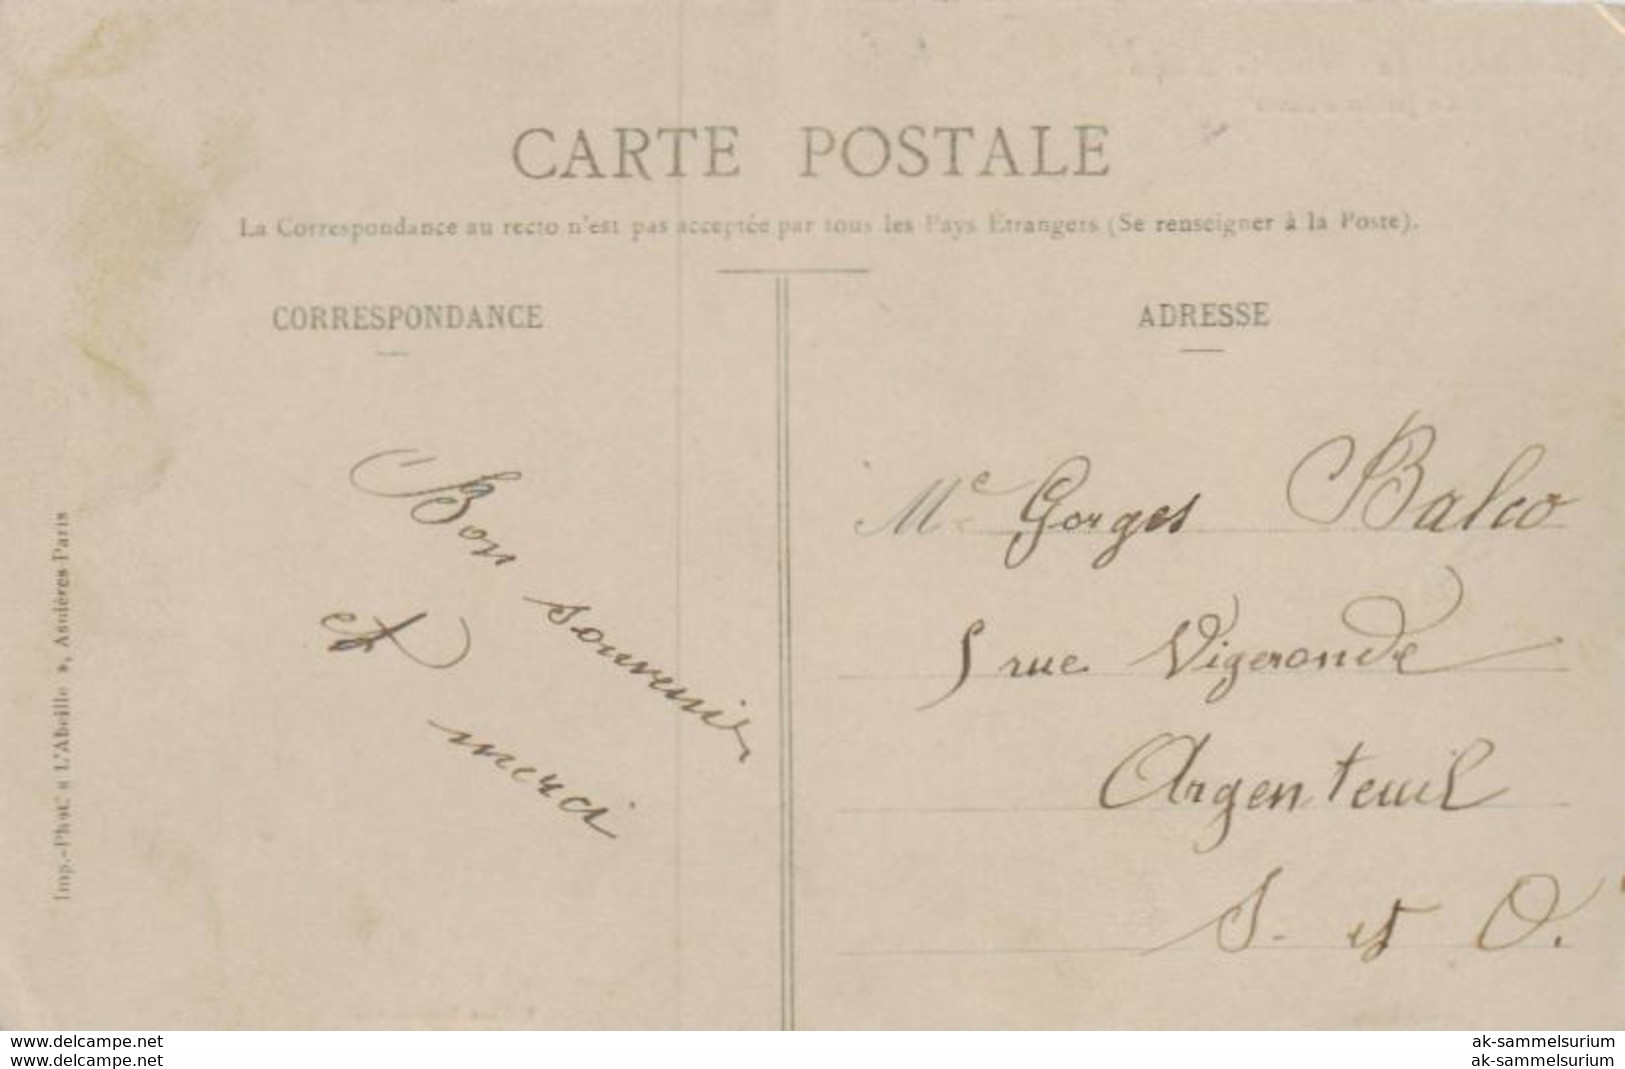 CARTE POSTALE
La Correspondance au recto n'est pas acceptée par tous les Pays Étrangers (Se renseigner à la Poste).
CORRESPONDANCE
ADRESSE
Bon souvenir
et merci
Me Gorges Balco
5 rue Vigeronde
Argenteuil
S. et O.
Imp.-Phot. « L'Abeille », Asnières-Paris
www.delcampe.net
www.delcampe.net
ak-sammelsurium
ak-sammelsurium